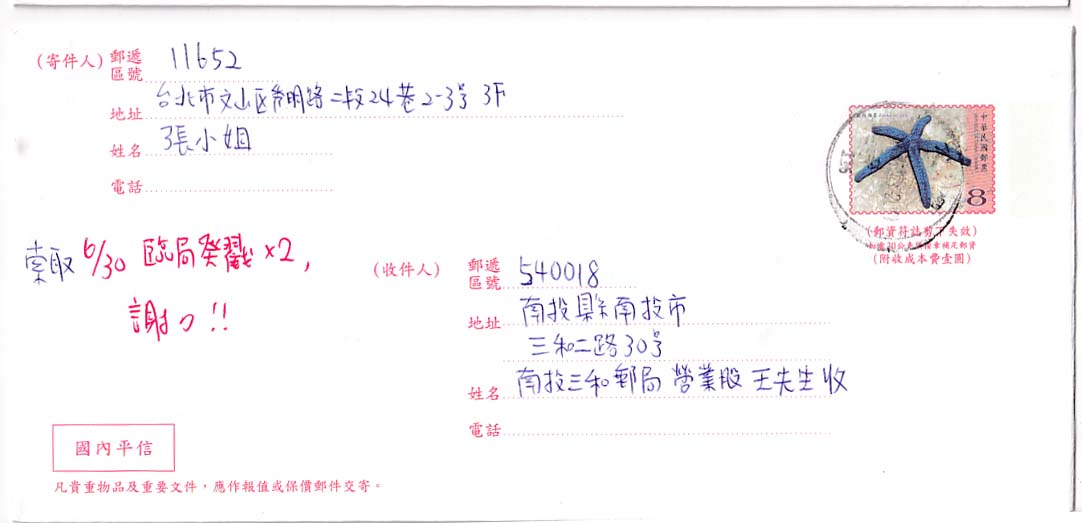 (寄件人) 郵遞區號 11652
地址 台北市文山区秀明路二段24巷2-3号 3F
姓名 張小姐
電話
中華民國郵票
8
(郵資符誌剪下失效)
(附收成本費壹圓)
索取 6/30 臨局癸戳×2,
謝つ!!
(收件人) 郵遞區號 540018
地址 南投縣南投市
三和二路30号
姓名 南投三和郵局 營業股 王先生收
電話
國內平信
凡貴重物品及重要文件,應作報值或保價郵件交寄。